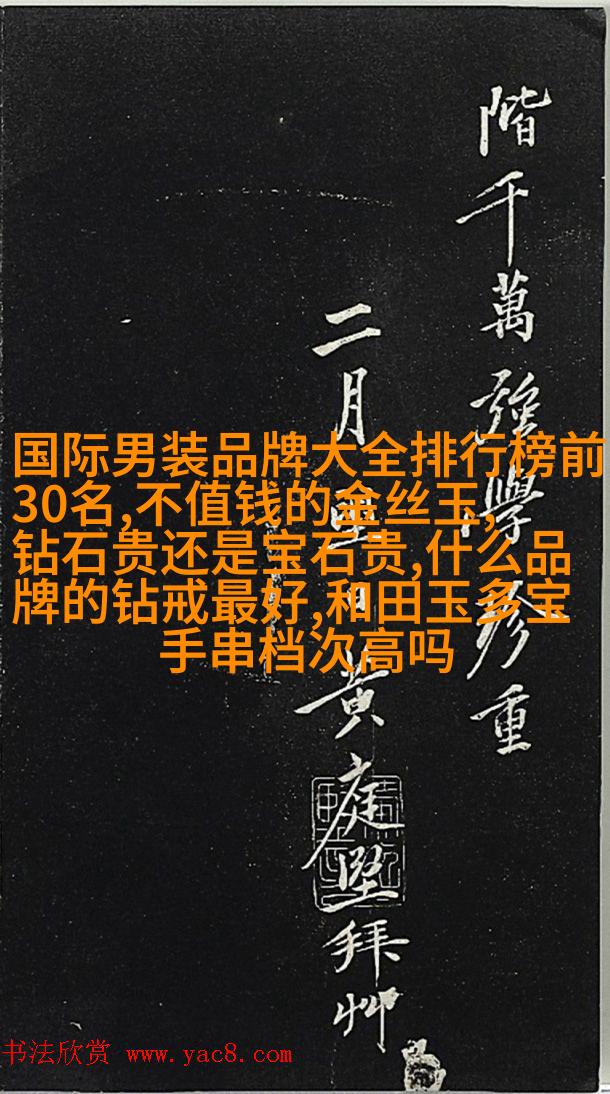 階千萬強學珍重
二月
黄庭堅拜
国际男装品牌大全排行榜前
30名,不值钱的金丝玉,
钻石贵还是宝石贵,什么品
牌的钻戒最好,和田玉多宝
手串档次高吗
书法欣赏 www.yac8.com